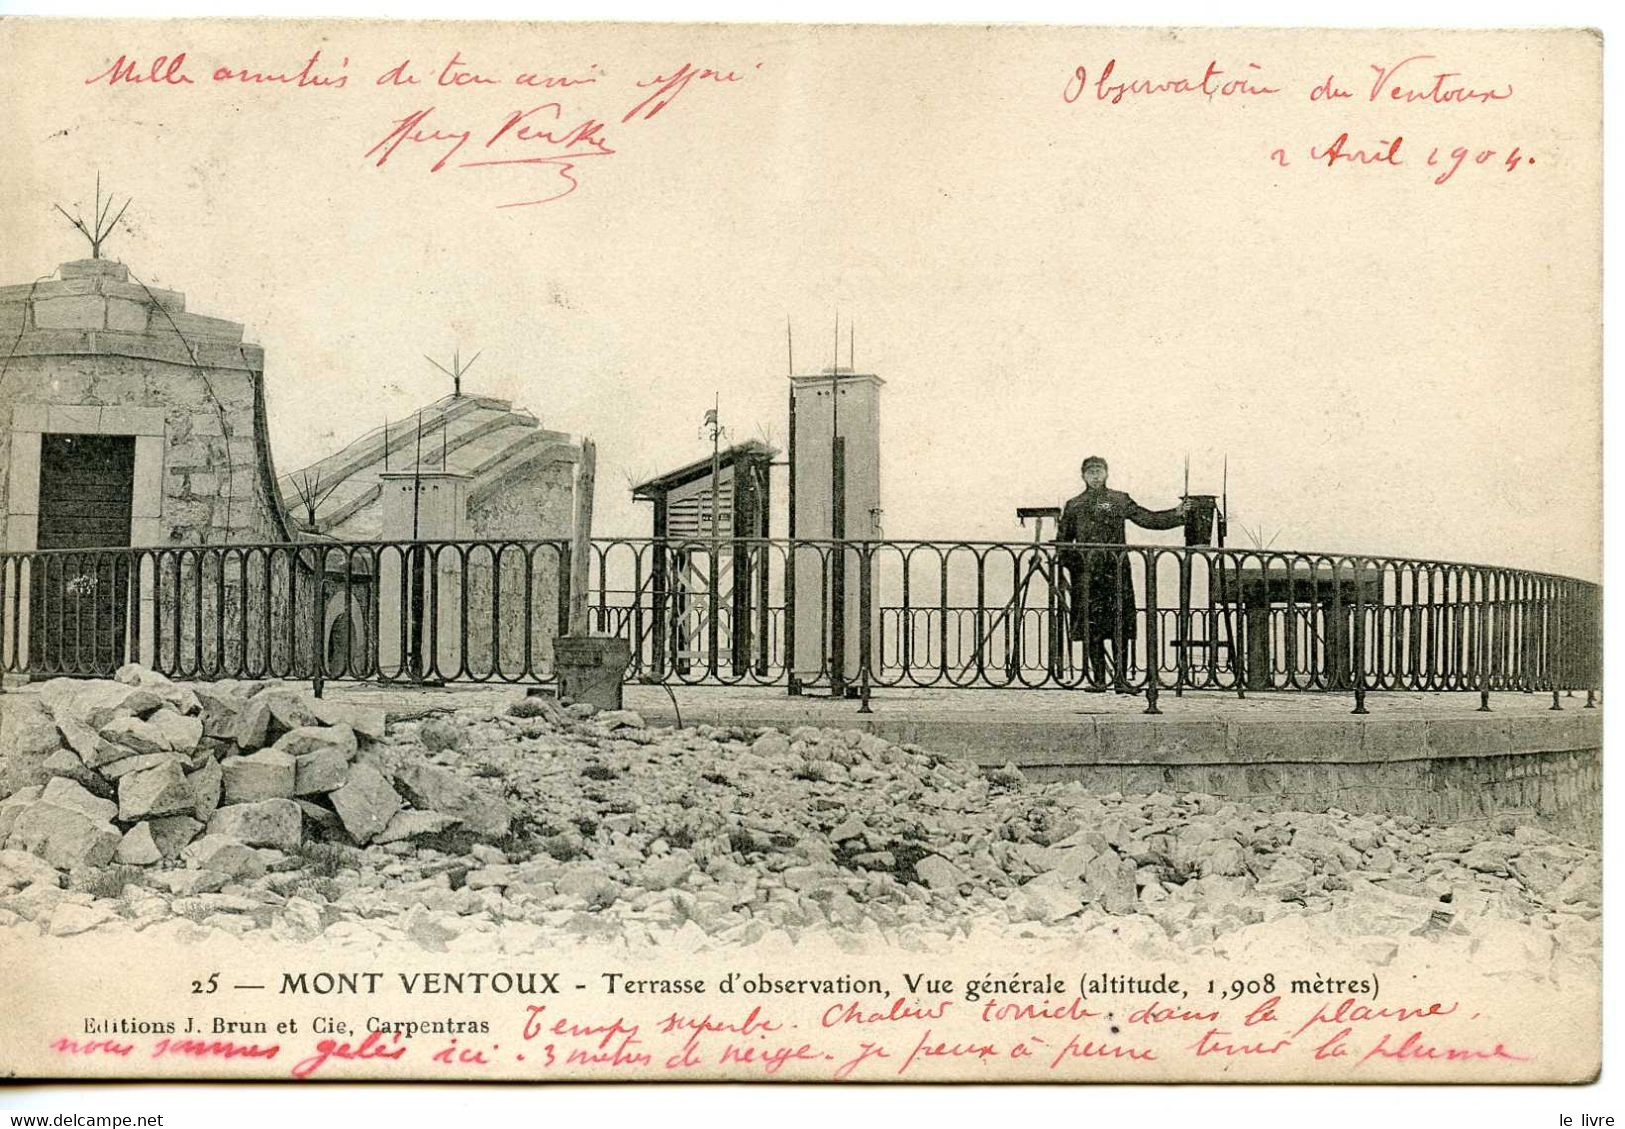 Mille amitiés de ton ami
Observatoire du Ventoux
2 Avril 1904.
25 — MONT VENTOUX - Terrasse d'observation, Vue générale (altitude, 1,908 mètres)
Editions J. Brun et Cie, Carpentras
Temps superbe. Chaleur torride dans la plaine.
nous sommes gelés ici. 3 mètres de neige. Je peux à peine tenir la plume
le livre